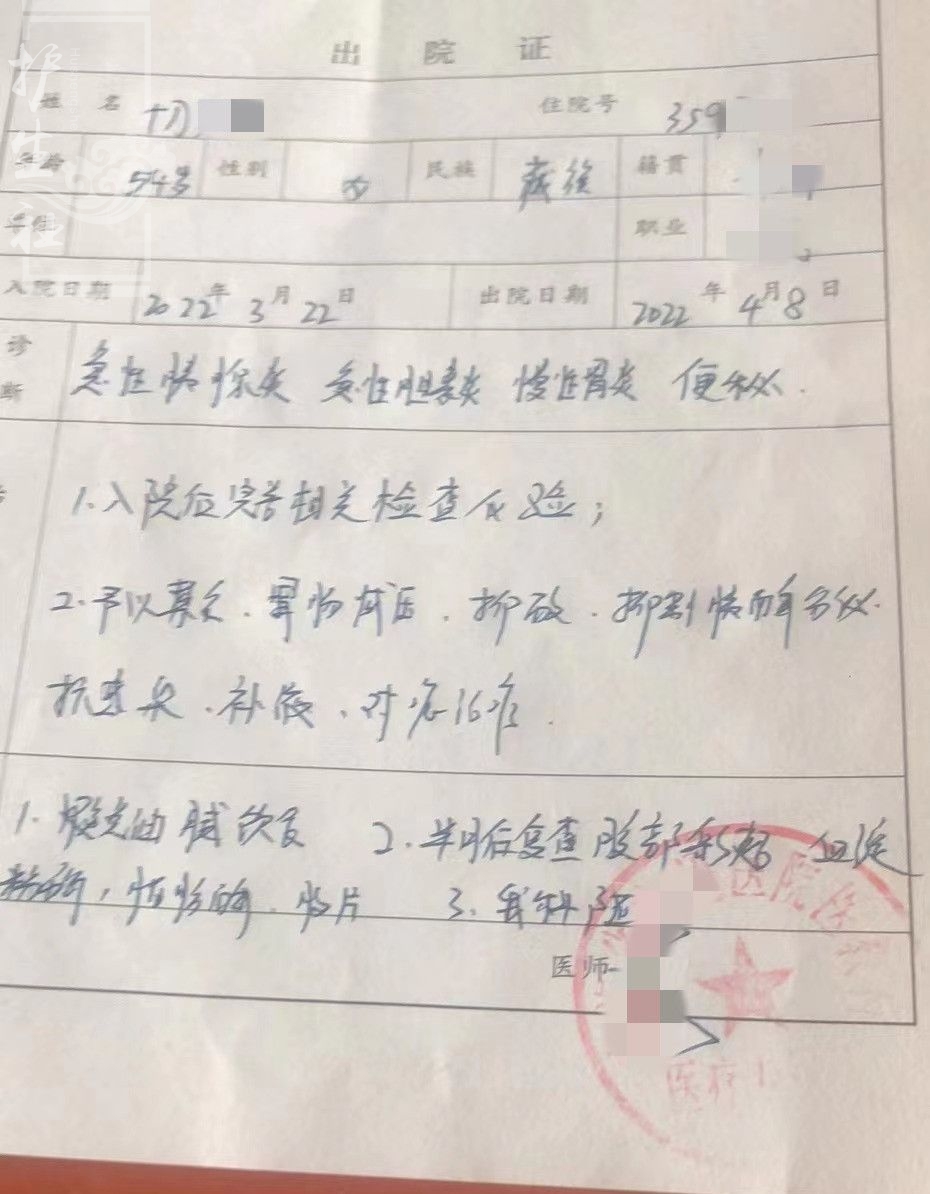 护生社
出院证
姓名 切 住院号 359
年龄 54岁 性别 女 民族 藏族 籍贯
单位 职业
入院日期 2022年3月22日 出院日期 2022年4月8日
诊断 急性胰腺炎 急性胆囊炎 慢性胃炎 便秘.
1.入院后完善相关检查化验;
2.予以禁食、胃肠减压、抑酸、抑制胰酶分泌.
抗感染、补液、对症治疗.
1. 避免油腻饮食 2. 半月后复查腹部彩超 血淀
粉酶, 脂肪酶. 3. 我科随
医师
医院医